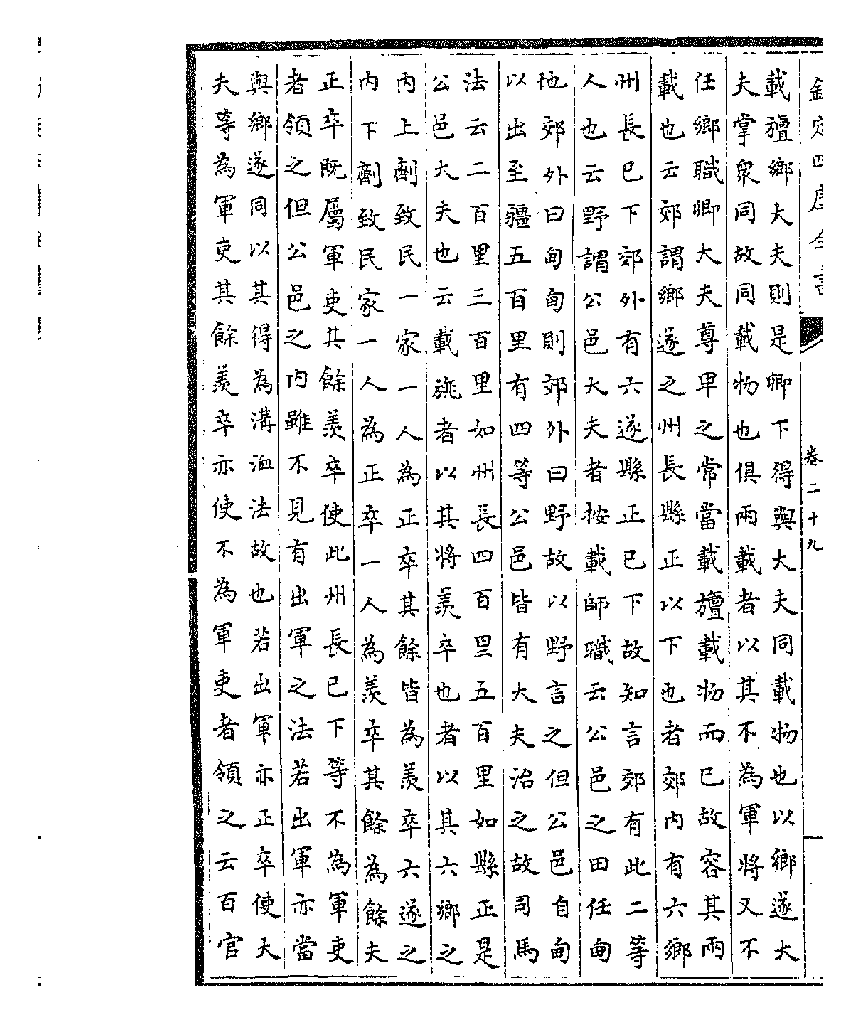 欽定四庫全書
卷二十九
載旜鄉大夫則是卿下得與大夫同載物也以鄉遂大
夫掌衆同故同載物也俱兩載者以其不為軍將又不
任鄉職卿大夫尊卑之常當載旜載物而已故容其兩
載也云郊謂鄉遂之州長縣正以下也者郊内有六鄉
州長已下郊外有六遂縣正已下故知言郊有此二等
人也云野謂公邑大夫者按載師職云公邑之田任甸
地郊外曰甸甸則郊外曰野故以野言之但公邑自甸
以出至疆五百里有四等公邑皆有大夫治之故司馬
法云二百里三百里如州長四百里五百里如縣正是
公邑大夫也云載旐者以其將羨卒也者以其六鄉之
内上劑致民一家一人為正卒其餘皆為羨卒六遂之
内下劑致民家一人為正卒一人為羨卒其餘為餘夫
正卒既屬軍吏其餘羨卒使此州長已下等不為軍吏
者領之但公邑之内雖不見有出軍之法若出軍亦當
與鄉遂同以其得為溝洫法故也若出軍亦正卒使大
夫等為軍吏其餘羨卒亦使不為軍吏者領之云百官